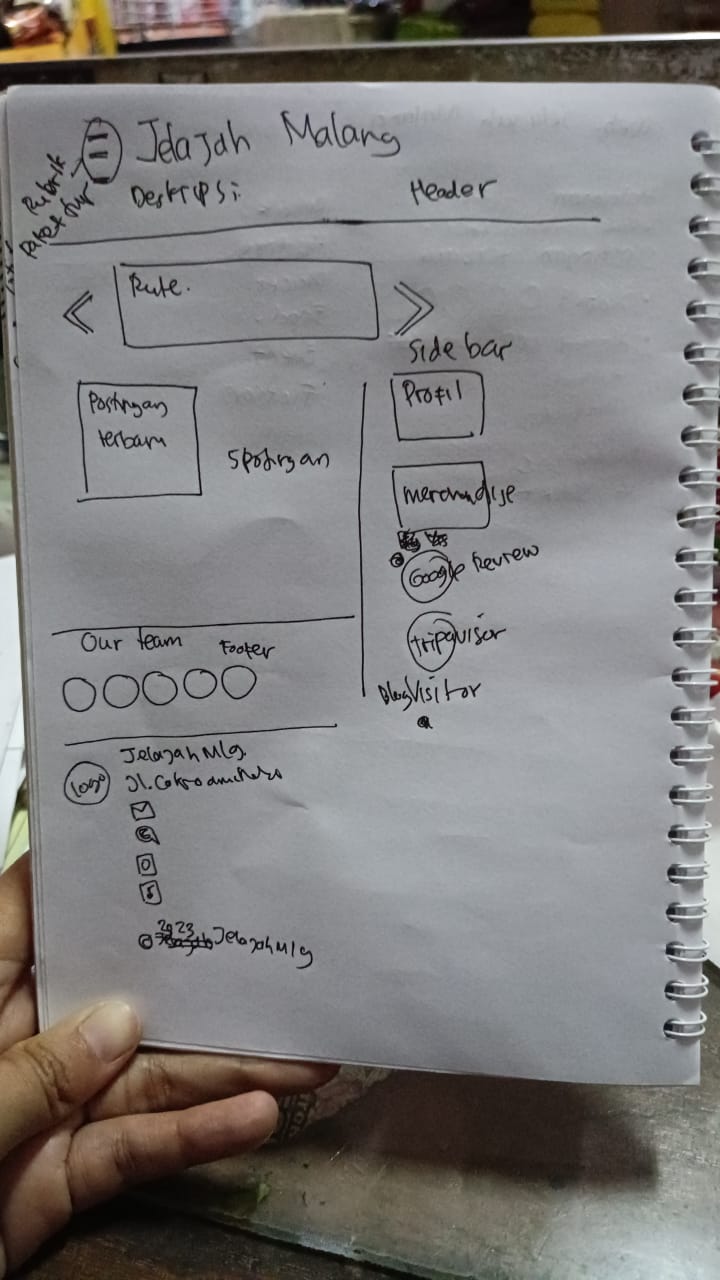 Jelajah Malang
Rubrik
Paket tur
Deskripsi
Header
Rute.
Side bar
Postingan
terbaru
5 postingan
Profil
Merchandise
Google Review
tripadvisor
Blog Visitor
Our team
Footer
Logo
Jelajah Mlg.
Jl. Cokroaminoto
© 2023 Jelajah Mlg